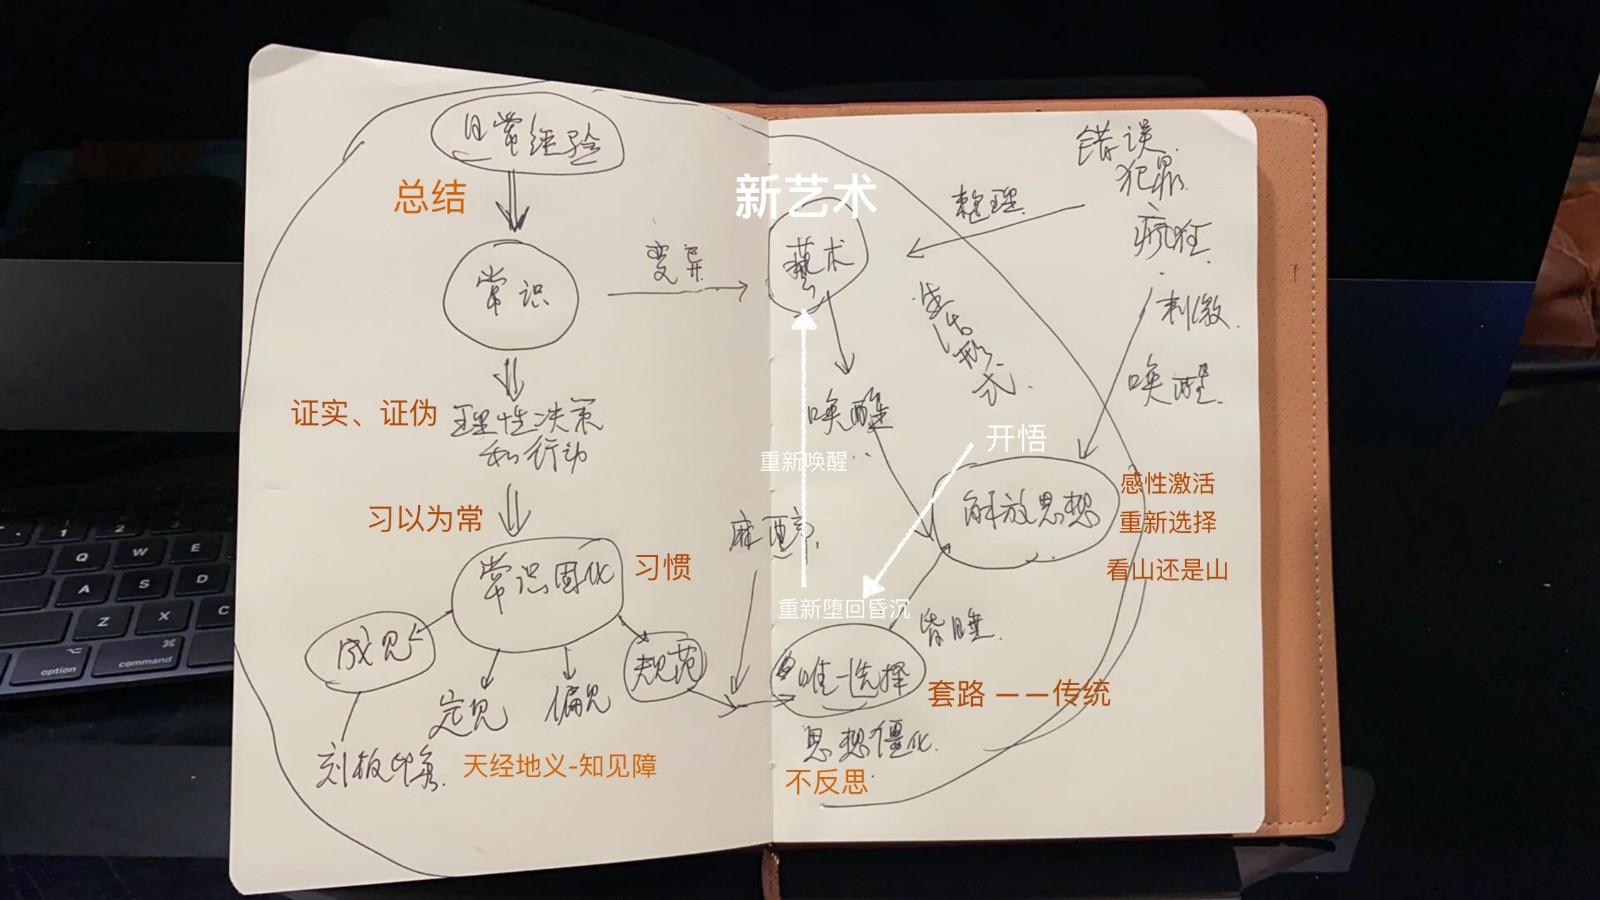 日常经验
总结
常识
变异
证实、证伪
理性决策
和行动
习以为常
常识固化
习惯
成见
定见
偏见
规范
刻板印象.
天经地义-知见障
新艺术
藝术
整理.
错误.
犯罪.
疯狂.
刺激.
唤醒.
生活形式.
唤醒
重新唤醒
开悟
麻醉.
解放思想
感性激活
重新选择
看山还是山
重新堕回昏沉
昏睡.
唯一选择
套路 ——传统
思想僵化.
不反思
Q
W
E
A
S
D
Z
X
C
option
⌘
command